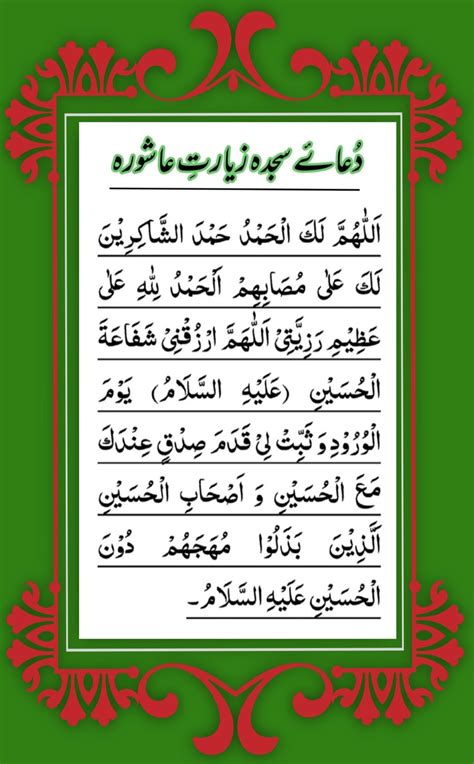 دُعائے سجدہ زیارتِ عاشورہ
اَللّٰهُمَّ لَكَ الْحَمْدُ حَمْدَ الشَّاكِرِيْنَ
لَكَ عَلٰى مُصَابِهِمْ اَلْحَمْدُ لِلّٰهِ عَلٰى
عَظِيْمِ رَزِيَّتِيْ اَللّٰهُمَّ ارْزُقْنِيْ شَفَاعَةَ
الْحُسَيْنِ (عَلَيْهِ السَّلَامُ) يَوْمَ
الْوُرُوْدِ وَ ثَبِّتْ لِيْ قَدَمَ صِدْقٍ عِنْدَكَ
مَعَ الْحُسَيْنِ وَ اَصْحَابِ الْحُسَيْنِ
الَّذِيْنَ بَذَلُوْا مُهَجَهُمْ دُوْنَ
الْحُسَيْنِ عَلَيْهِ السَّلَامُ۔